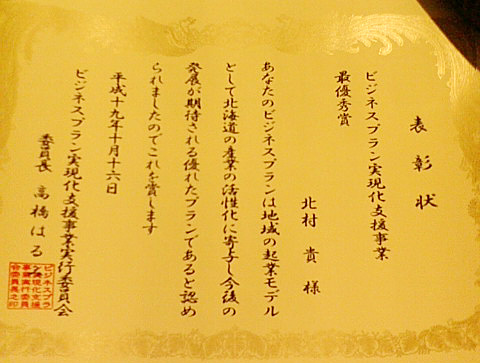 表彰状
ビジネスプラン実現化支援事業
最優秀賞
北村 貴 様
あなたのビジネスプランは地域の起業モデル
として北海道の産業の活性化に寄与し今後の
発展が期待される優れたプランであると認め
られましたのでこれを賞します
平成十九年十月十六日
ビジネスプラン実現化支援事業実行委員会
委員長 高橋はる
ビジネスプラ
ン実現化支援
事業実行委員
会委員長之印